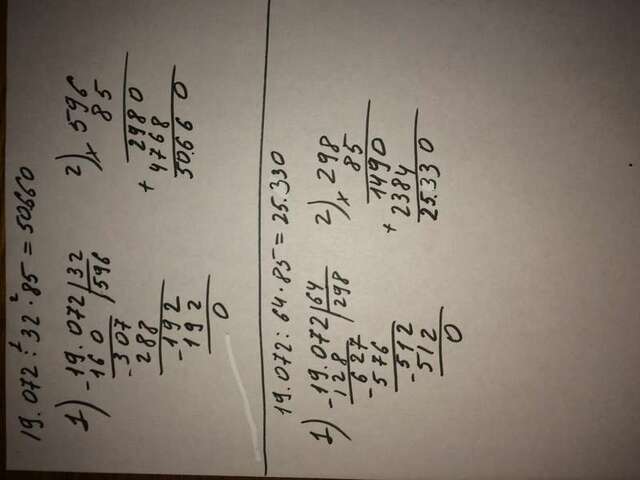 19.072 : 32 · 85 = 50660
1 2
1) - 19.072 | 32
160 | 596
- 307
288
- 192
192
0
2) x 596
85
+ 2980
4768
50.660
19.072 : 64 · 85 = 25.330
1) - 19.072 | 64
128 | 298
- 627
576
- 512
512
0
2) x 298
85
+ 1490
2384
25.330